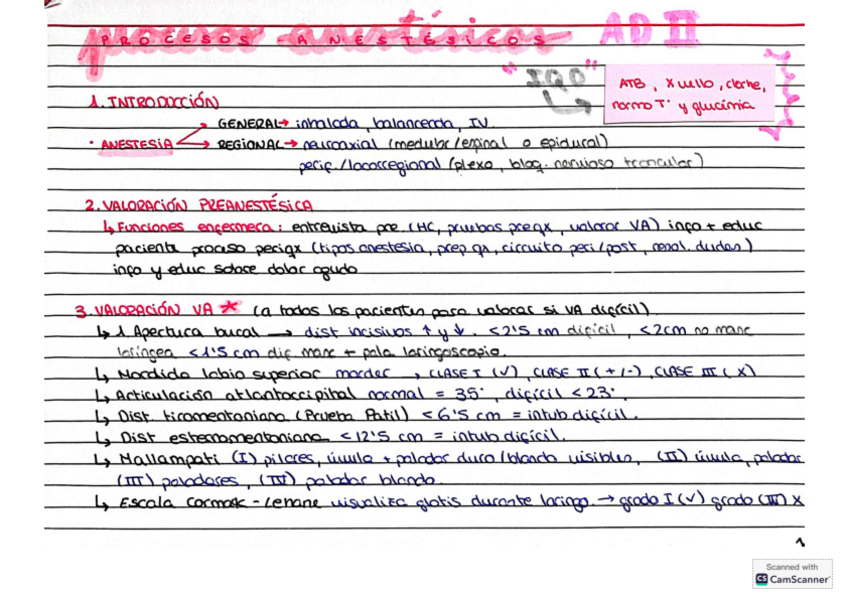 PROCESOS ANESTÉSICOS AD II
"IQ0"
ATB, X vello, clorhe,
normo Tª y glucemia
1. INTRODUCCIÓN
GENERAL → inhalada, balanceada, IV.
· ANESTESIA → REGIONAL → neuroaxial (medular/espinal o epidural)
perif./locorregional (plexo, bloq. nervioso troncular)
2. VALORACIÓN PREANESTÉSICA
↳ Funciones enfermera: entrevista pre (HC, pruebas preqx, valorar VA) info + educ
paciente proceso periqx (tipos anestesia, prep qx, circuito peri/post, resol. dudas)
info y educ sobre dolor agudo
3. VALORACIÓN VA * (a todos los pacientes para valorar si VA difícil).
↳ 1. Apertura bucal → dist incisivos ↑ y ↓. <2'5 cm difícil, <2cm no masc
laríngea <1'5 cm dif masc + pala laringoscopio.
↳ Mordida labio superior morder → CLASE I (✓), CLASE II (+/-), CLASE III (X)
↳ Articulación atlantoccipital normal = 35°, difícil <23°.
↳ Dist. tiromentoniana (Prueba Patil) <6'5 cm = intub difícil.
↳ Dist esternomentoniana <12'5 cm = intub difícil.
↳ Mallampati (I) pilares, úvula + paladar duro/blando visibles, (II) úvula, paladar
(III) paladares, (IV) paladar blando.
↳ Escala Cormak - Lehane visualiza glotis durante laringo. → grado I (✓) grado (III) X
1
Scanned with
CS CamScanner